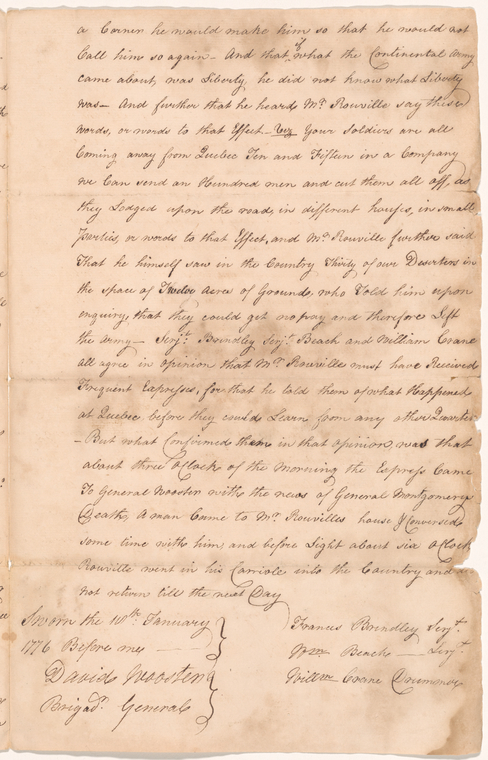 a Corner he would make him so that he would not
Call him so again – And that if what the Continental Army
came about, was Liberty, he did not know what Liberty
was – And further that he heard Mr. Rouville say these
words, or words to that Effect – Viz Your Soldiers are all
Coming away from Quebec Ten and Fifteen in a Company
we Can send an Hundred men and cut them all off, as
they Lodged upon the road, in different houses, in small
Parties, or words to that Effect, and Mr. Rouville further said
That he himself saw in the Country Thirty of our Deserters in
the space of Twelve Acres of Ground, who Told him upon
enquiry, that they could get no pay and therefore Left
the army – Serjt. Brindley Serjt. Beach and William Crane
all agree in opinion that Mr. Rouville must have Recieved
Frequent Expresses, for that he told them of what Happened
at Quebec before they could Learn from any other Quarter
– But what Confirmed them in that opinion, was that
about three O'Clock of the Morning the Express Came
To General Wooster with the news of General Montgomerys
Death, A man Came to Mr. Rouvilles house & Conversed
some time with him, and before Light about six o'Clock
Rouville went in his Carriole into the Country and
not return till the next Day
Sworn the 18th. January
1776 Before me
David Wooster
Brigadr. General
Francis Brindley Serjt.
Wm. Beach — Serjt.
Willm Crane Drummer